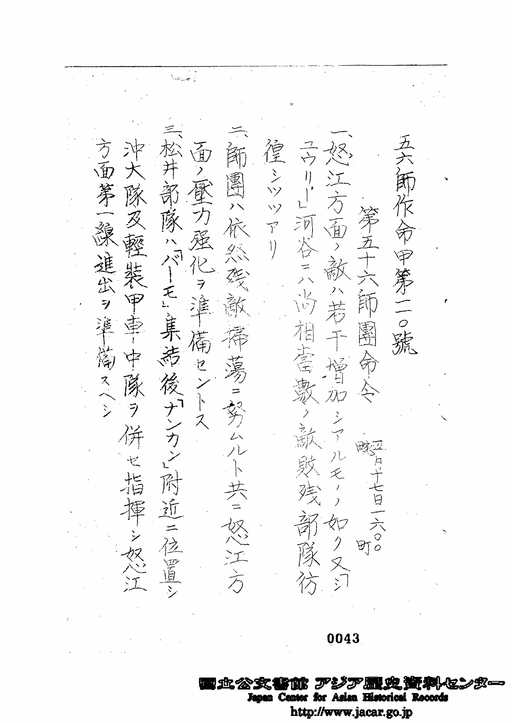 五六師作命甲第二〇號
第五十六師團命令
五月十七日一六〇〇
町
一、怒江方面ノ敵ハ若干増加シアルモノノ如ク又「シ
ユウリー」河谷ニハ尚相當數ノ敵敗残部隊彷
徨シツツアリ
二、師團ハ依然残敵掃蕩ニ努ムルト共ニ怒江方
面ノ壓力強化ヲ準備セントス
三、松井部隊ハ「バーモ」集結後「ナンカン」附近ニ位置シ
沖大隊及輕装甲車一中隊ヲ併セ指揮シ怒江
方面第一線進出ヲ準備スヘシ
0043
国立公文書館 アジア歴史資料センター
Japan Center for Asian Historical Records
http://www.jacar.go.jp